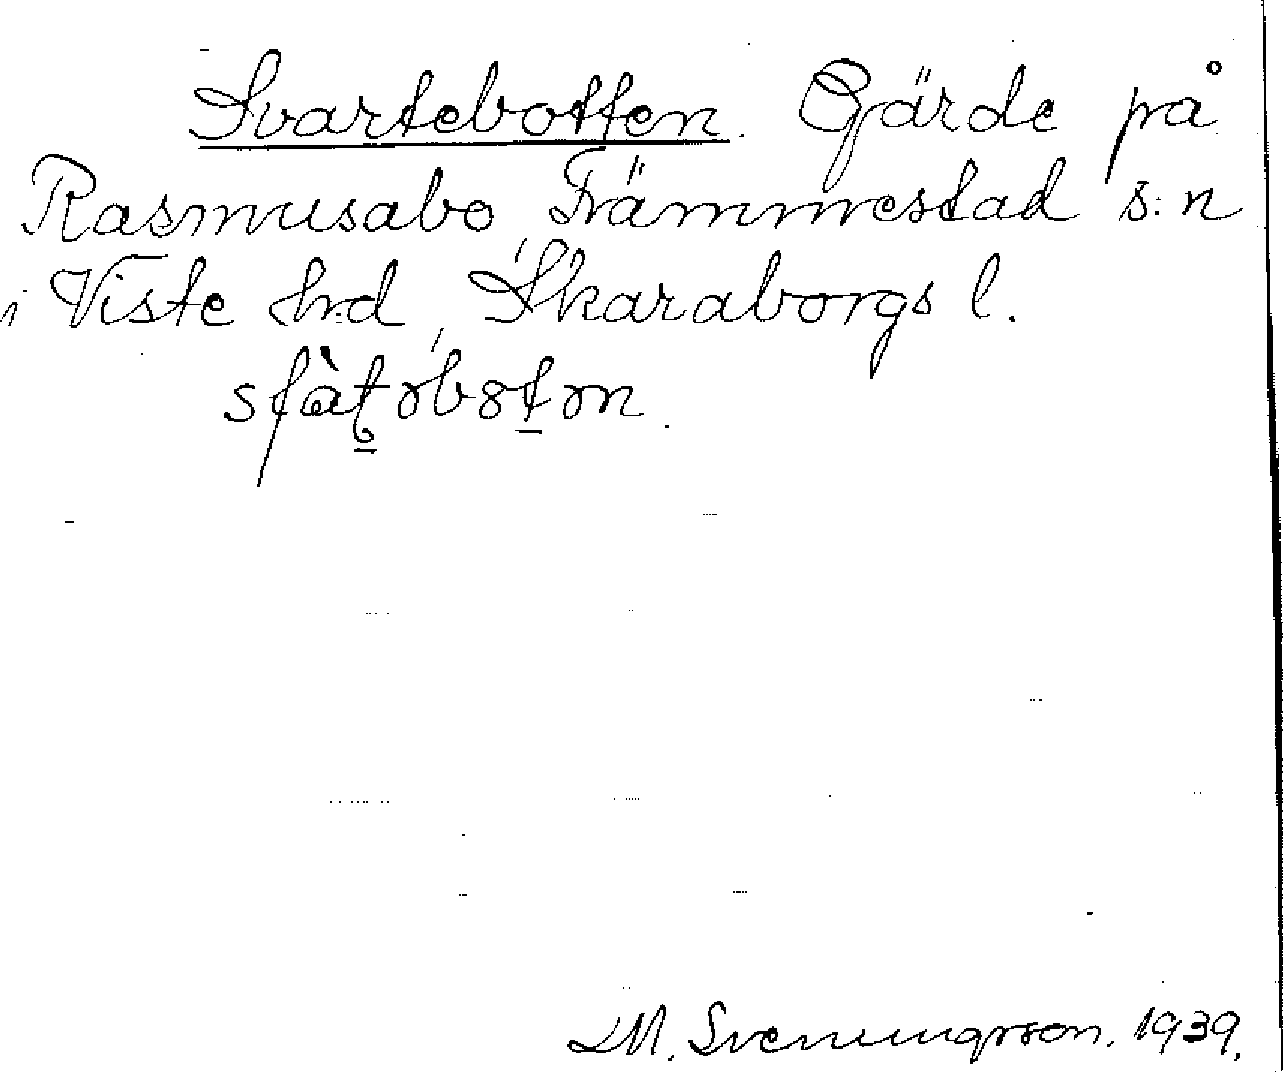 Svartebotten. Gärde på
Rasmusabo, Främmestad s:n
i Viste hrd, Skaraborgs l.
sfàt̠əb8t̠ən.
M. Svenungsson. 1939.